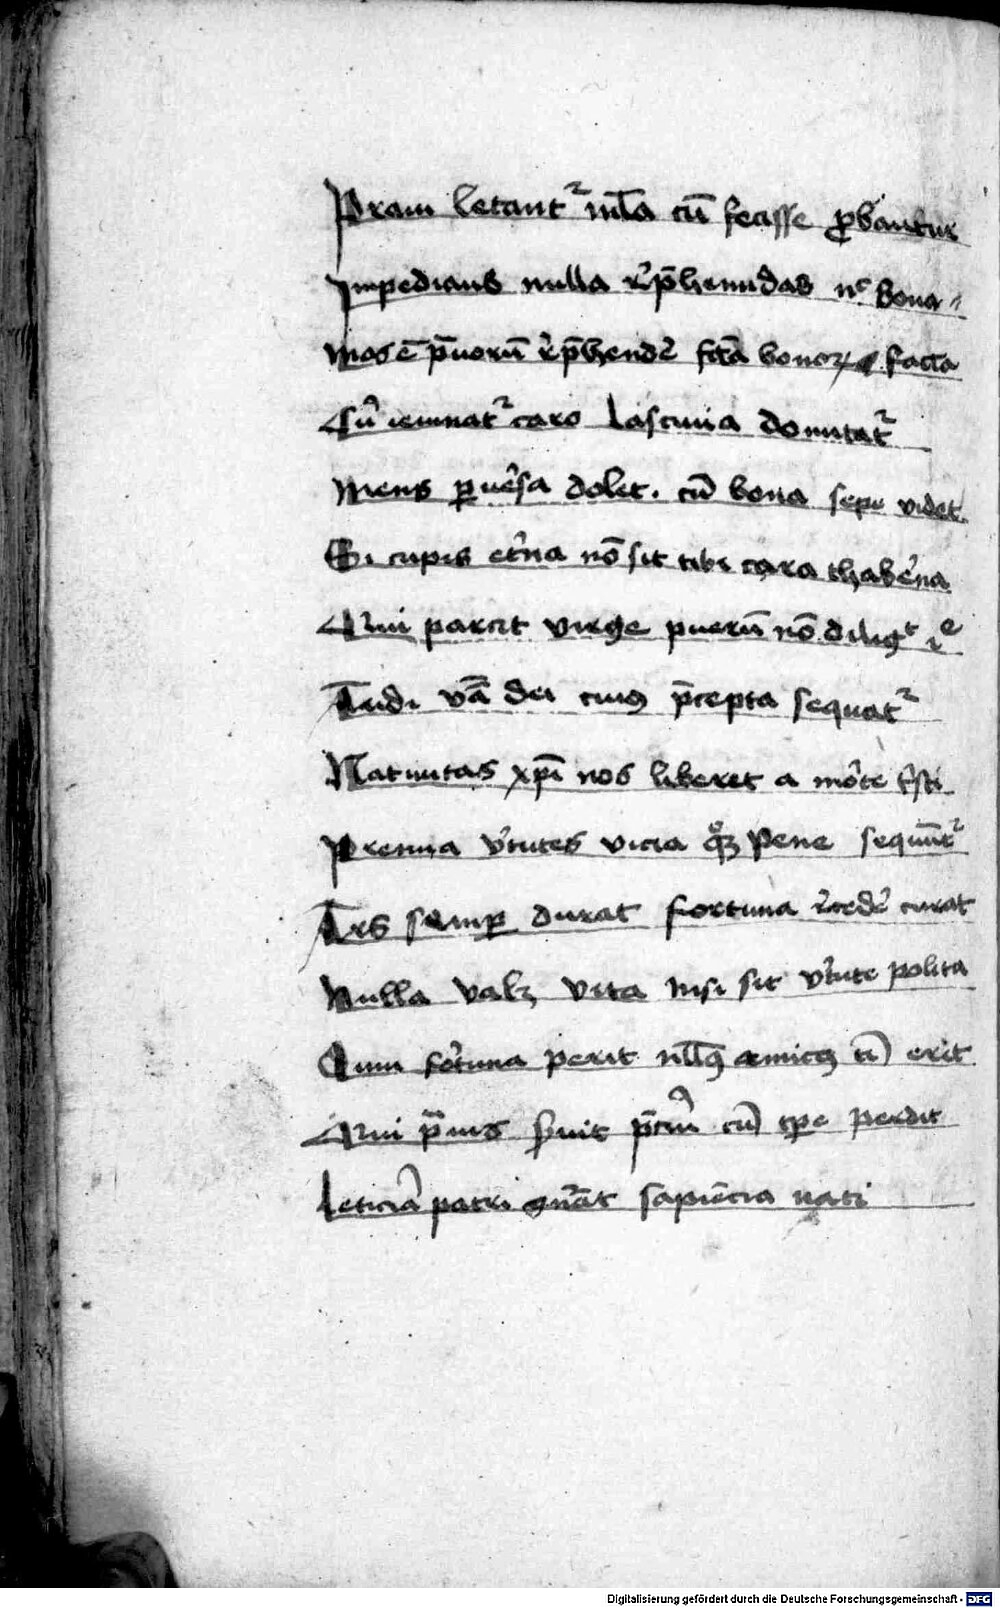 Praui letantʳ mͣla cū fecisse ꝓbantur
Impedians nulla rep̄hendas nᶜ bona
Mos ē p̄uorū rep̄hendere fcā bonoꝝ facta
Cū ieiunatʳ caro lasciuia domitatʳ
Mens ꝑuersa dolet. cū bona sepe videt
Si cupis et̓na nō sit tibi cara thab̓na
Qui parcit virge puerū nō diligᵗ iᵉ
dei cuiꝰ p̄cepta sequatʳ
Natiuitas xp̄i nos liberet a morte
Premia v̓tutes vicia qͦꝫ pene sequūtʳ
Ars semꝑ durat fortuna recedere curat
Nulla valꝫ vita nisi sit v̓tute polita
Cum fortuna perit nll̄ꝰ amicꝰ ibi erit
Qui p̄uis cū tp̄e perdit
Leticiā patri gn̄at sapiēcia nati
Digitalisierung gefördert durch die Deutsche Forschungsgemeinschaft - DFG